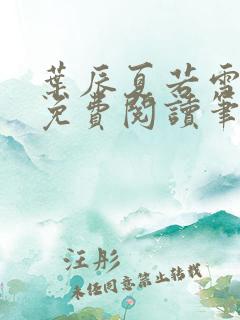 葉辰夏若雪
免費閱讀筆
汪彤
未經同意禁止轉載